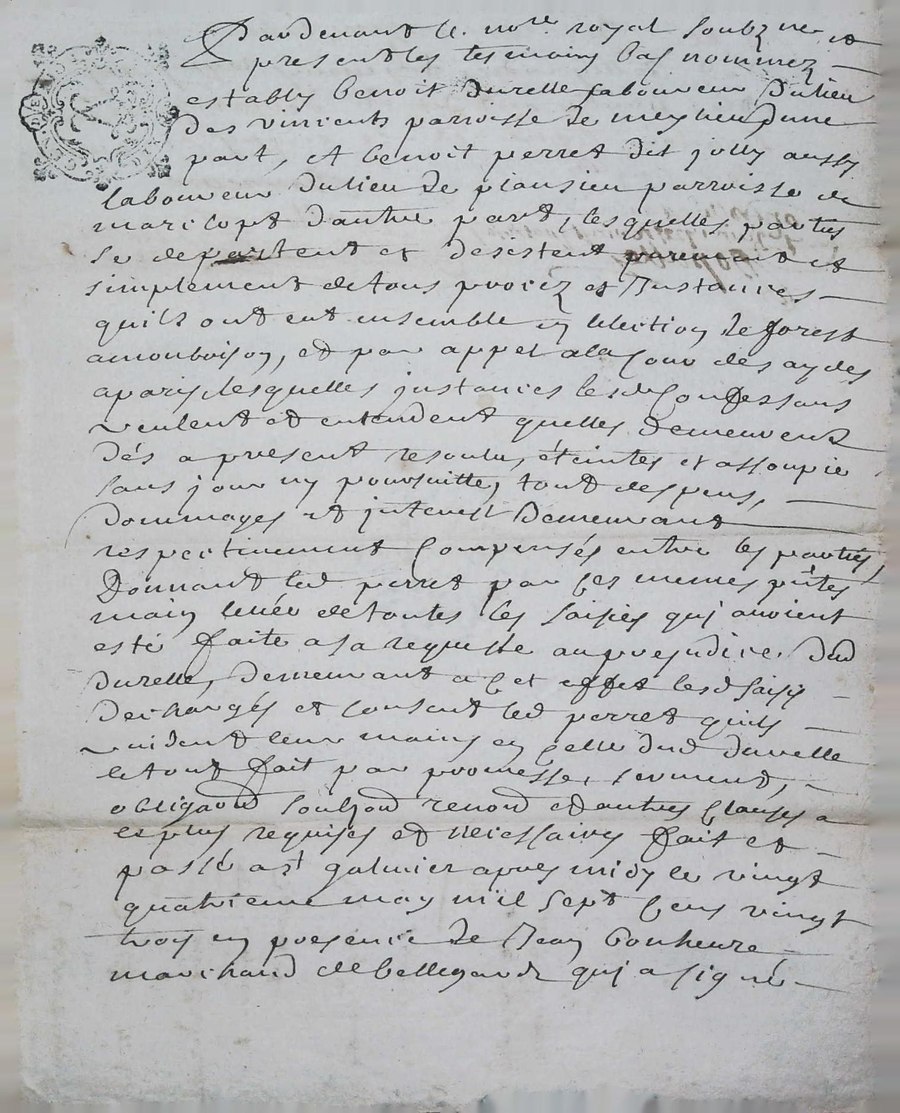 Pardevant le no.re royal soubzne et
present les tesmoins bas nommez
estably benoit Durelle laboureur du lieu
des vincents parroisse de meylieu d'une
part, et benoit perret dit jolly aussy
laboureur du lieu de plansieu parroisse de
marclopt d'autre part, lesquelles parties
se departent et desistent purement et
simplement de tous procez et Instances
quils ont eut ensemble en lelection de forest
a monbrison, et par appel a la Cour des aydes
a paris, lesquelles instances lesd Confessans
veulent et entendent quelles demeurent
dés a present resolu, éteintes et assoupie
sans jour ny poursuitte, tout despens,
dommages et interest Demeurant
respectivement Compensés entre les parties,
Donnant led perret par ces memes pntes
main levée de toutes les saisies qui avoient
esté faite a sa requeste au prejudice dud
durelle, demeurant a cet effet lesd saisy
dechargés et consent led perret quils
vuident leur mains en celle dud durelle
le tout fait par promesse, serment,
obligaond soubzond renond et autres clauses a
es plus requises et necessaires fait et
passé a st galmier apres midy le vingt
quatrieme may mil sept cens vingt
troy en presence de Jean bonheure
marchand de bellegarde qui a signé